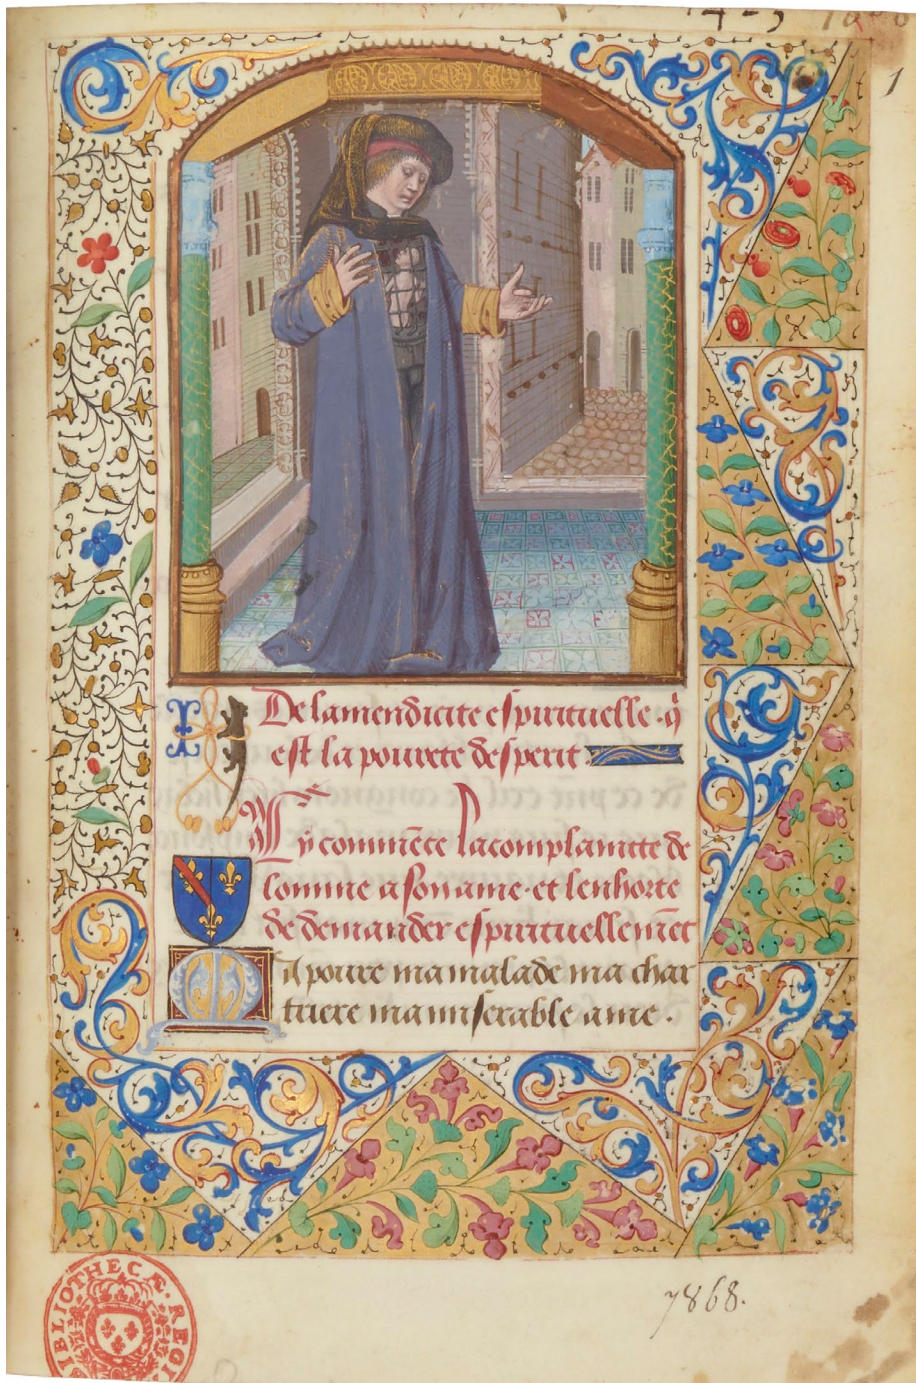 1
De la mendicite espirituelle · q̃
est la povrete desperit ·
Cy comm̃ece la complainte de
lomme a son ame · et lenhorte
de demander espirituellem̃et
A povre ma malade ma char
triere ma miserable ame ·
7868.
BIBLIOTHECÆ REGI